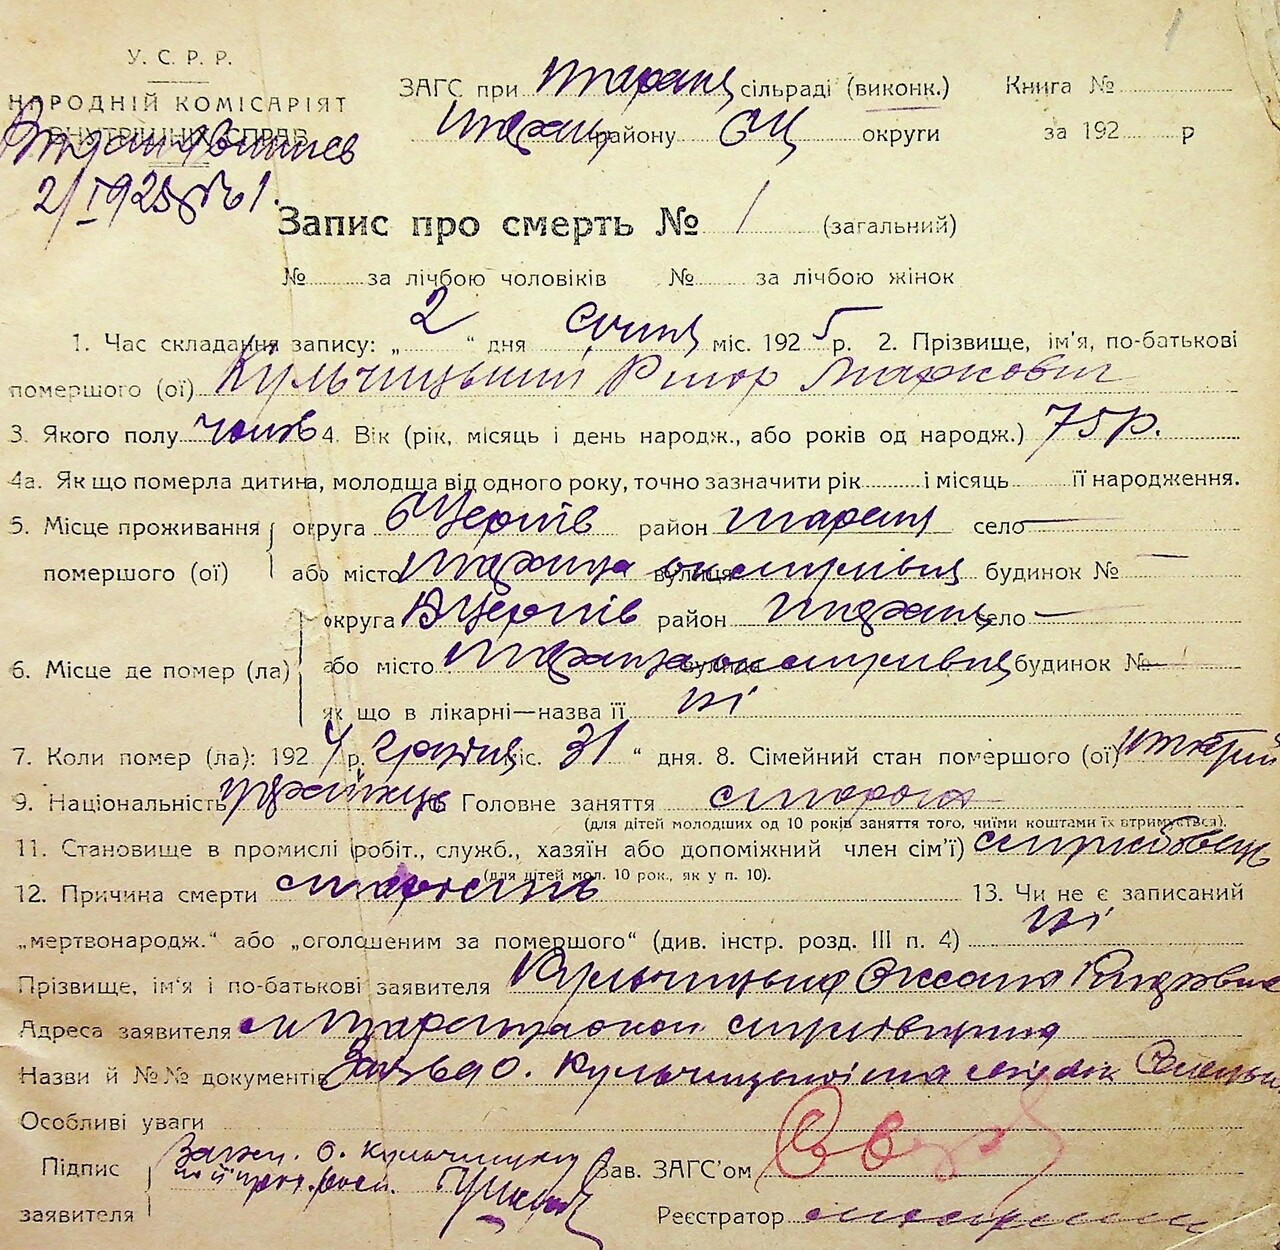 У. С. Р. Р.
НАРОДНІЙ КОМІСАРІЯТ
ВНУТРІШНІХ СПРАВ
2/I 1925 р № 1.
ЗАГС при Таращ сільраді (виконк.) Книга №
Таращ району БЦ округи за 192 р
Запис про смерть № 1 (загальний)
№ за лічбою чоловіків № за лічбою жінок
1. Час складання запису: „ 2 “ дня січня міс. 1925 р. 2. Прізвище, ім'я, по-батькові
помершого (ої) Кульчицький Григор Маркович
3. Якого полу чолов 4. Вік (рік, місяць і день народж., або років од народж.) 75 р.
4а. Як що померла дитина, молодша від одного року, точно зазначити рік і місяць її народження.
5. Місце проживання округа Б Церків район Таращ село —
помершого (ої) або місто Тараща вулиця будинок № —
округа Б Церків район Таращ село —
6. Місце де помер (ла) або місто Тараща вулиця будинок № —
як що в лікарні—назва її ні
7. Коли помер (ла): 1924 р. грудня міс. 31 “ дня. 8. Сімейний стан помершого (ої)
9. Національність українець Головне заняття
(для дітей молодших од 10 років заняття того, чиїми коштами їх втримується).
11. Становище в промислі (робіт., служб., хазяїн або допоміжний член сім'ї)
(для дітей мол. 10 рок., як у п. 10).
12. Причина смерти старість 13. Чи не є записаний
„мертвонародж.“ або „оголошеним за помершого“ (див. інстр. розд. III п. 4) ні
Прізвище, ім'я і по-батькові заявителя Кульчицька Оксана
Адреса заявителя м Тараща
Назви й №№ документів Заява О. Кульчицької та
Особливі уваги
Підпис О. Кульчицьку Зав. ЗАГС'ом
заявителя Реєстратор